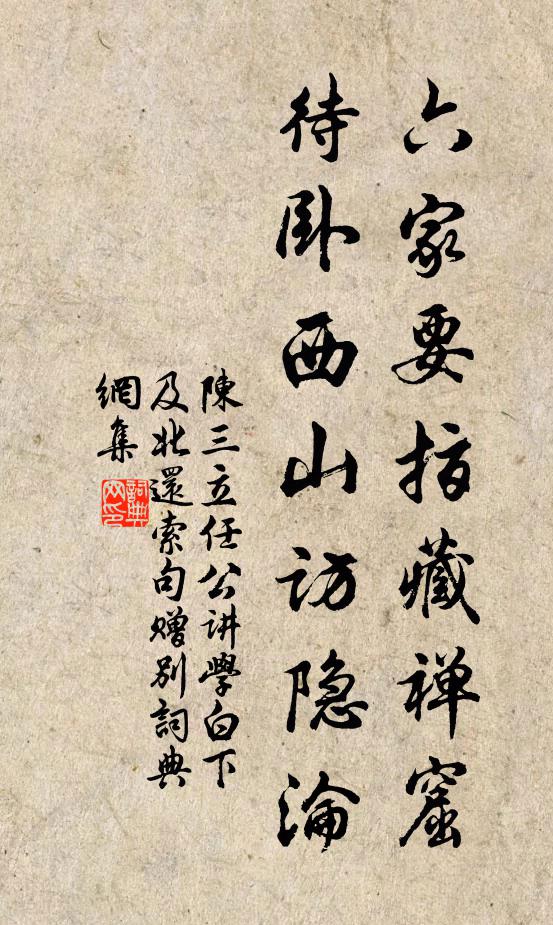 六家要指藏禅窟
待卧西山访隐沦
陳三立任公讲學白下
及北還索句贈別詞典
網集
詞典
网印